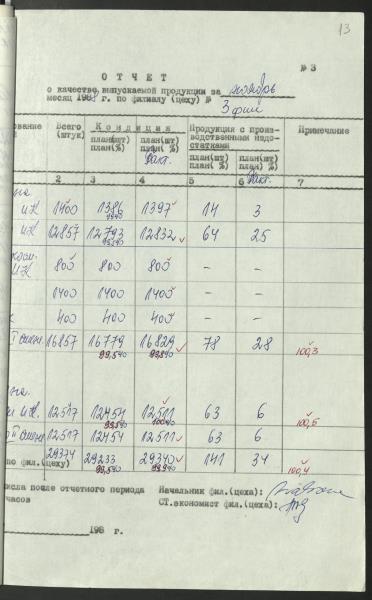 13
№ 3
О Т Ч Е Т
о качестве выпускаемой продукции за ноябрь
месяц 198 г. по филиалу (цеху) № 3 фил
ование Всего (штук) К о н д и ц и я Продукция с произ-
водственными недо-
статками Примечание
план(шт) план(шт) план(шт) план(шт)
план(%) план( %) план( %) план( %)
факт. факт.
2 3 4 5 6 7
на
1400 1386 1397 14 3
12857 12793 12832 64 25
800 800 800 - -
1400 1400 1400 - -
400 400 400 - -
I смене 16857 16779 16829 78 28
99,5% 100,3
на.
12517 12454 12511 63 6
99,5% 100,5
II смене 12517 12454 12511 63 6
по фил.(цеху) 29374 29233 29340 141 34
99,5% 100,4
исла после отчетного периода Начальник фил.(цеха):
часов СТ.экономист фил.(цеха):
198 г.